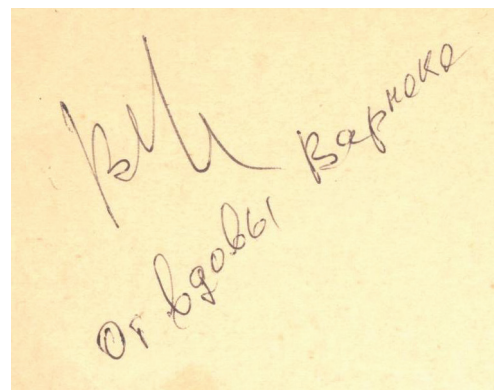 От вдовы
Варнака